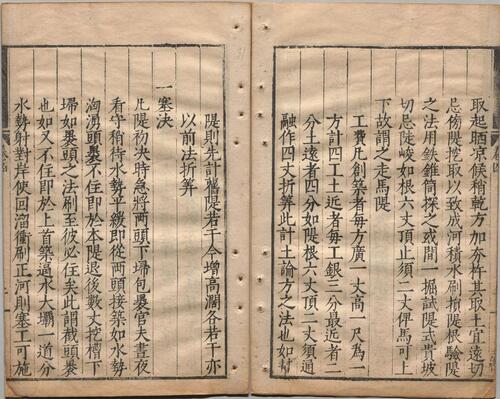 取起晒凉候稍乾方加夯杵其取土宜遠切
忌傍隄挖取以致成河積水刷損隄根驗隄
之法用鉄錐筒探之或間一掘試隄式貴坡
切忌陡峻如根六丈頂止須二丈俾馬可上
下故謂之走馬隄
工費凡創築者每方廣一丈高一尺為一
方計四工土近者每工銀三分最近者二
分土遠者四分如隄根六丈頂二丈須通
融作四丈折筭此計土論方之法也如幇
隄則先計舊隄若干今增高濶各若干亦
以前法折筭
一塞決
凡隄初決時急將兩頭下埽包裹官夫晝夜
看守稍待水勢平緩即從兩頭接築如水勢
洶湧頭裹不住即於本隄退後數丈挖槽下
埽如裹頭之法刷至彼必住矣此謂截頭裹
也如又不住即於上首築逼水大壩一道分
水勢射對岸使回溜衝刷正河則塞工可施